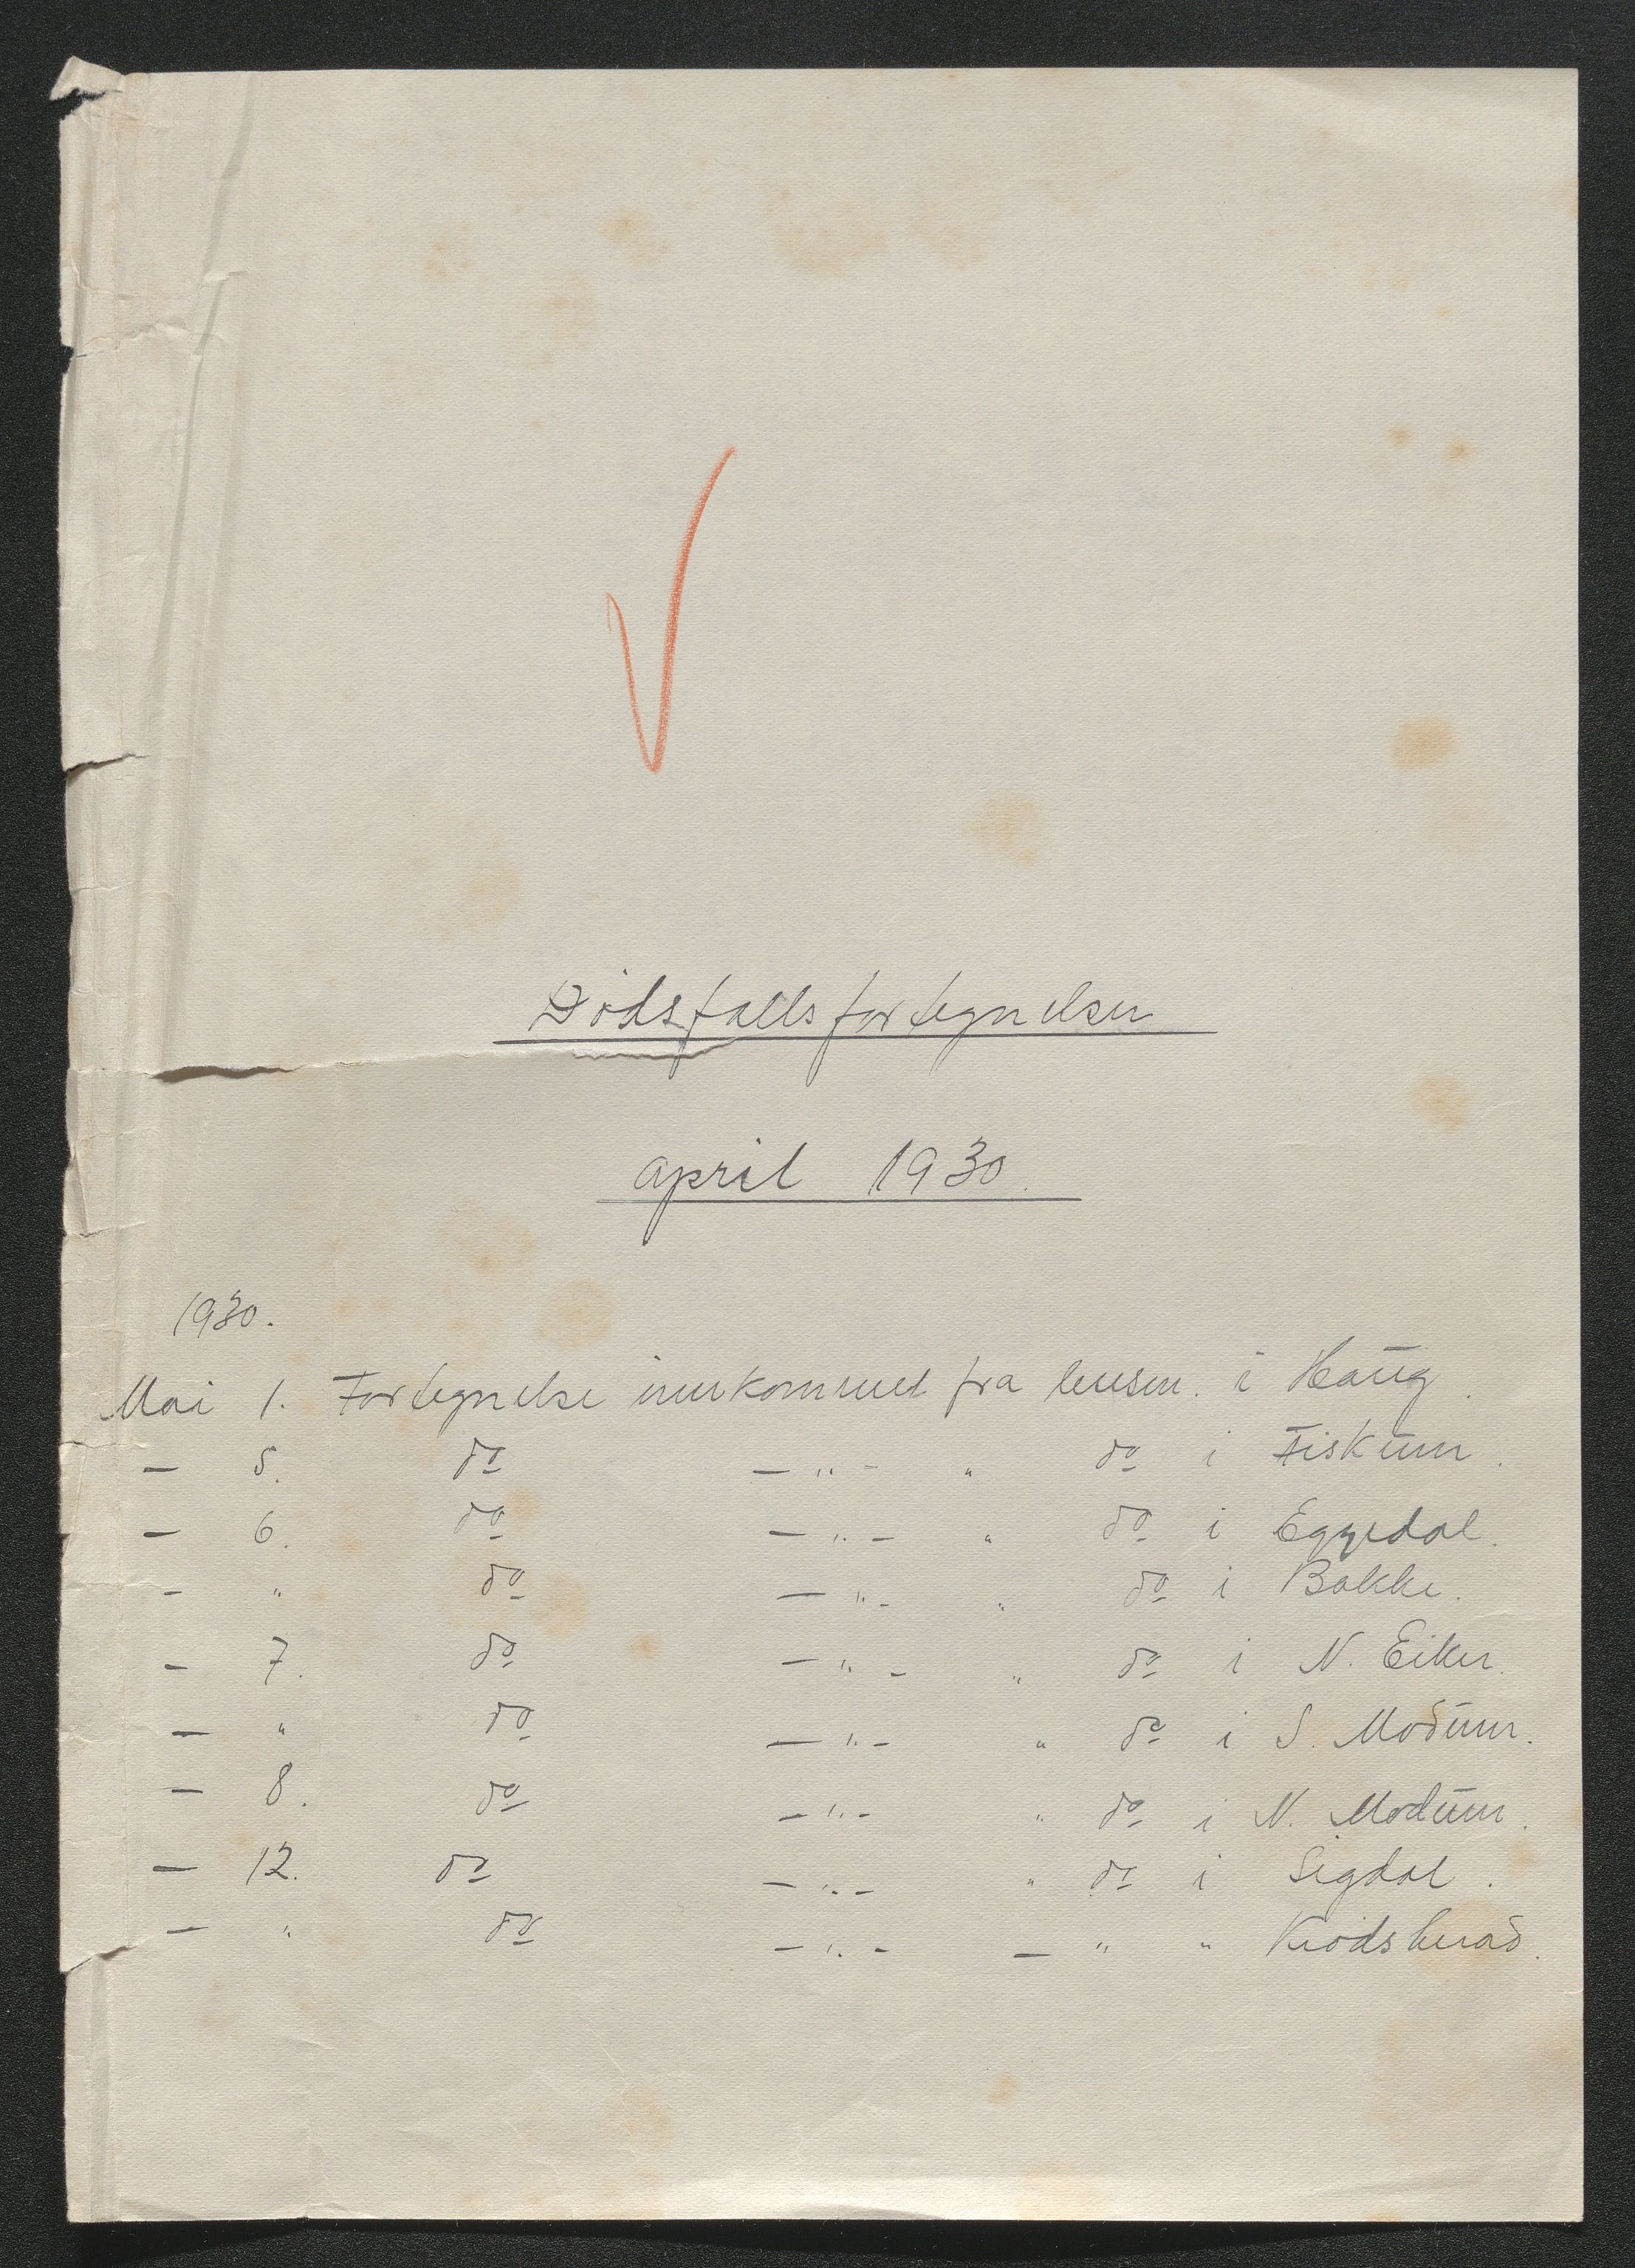 Dødsfallsfortegnelser
april 1930.
1930.
Mai 1. Fortegnelse innkommet fra lensm. i Haug.
— 5. do —"— " do i Fiskum.
— 6. do —"— " do i Eggedal.
— " do —"— " do i Bakke.
— 7. do —"— " do i N. Eiker.
— " do —"— " do i S. Modum.
— 8. do —"— " do i N. Modum.
— 12. do —"— " do i Sigdal.
— " do —"— — " " Krødsherad.